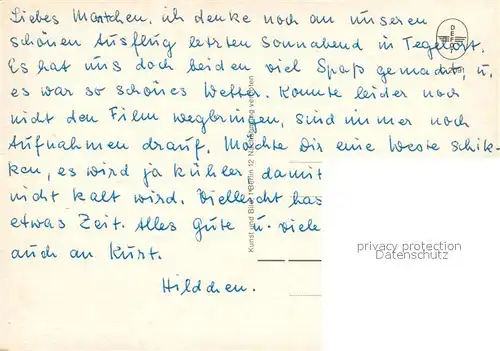 Liebes Martchen, ich denke noch an unseren
schönen Ausflug letzten Sonnabend in Tegelort.
Es hat uns doch beiden viel Spaß gemacht, u.
es war so schönes Wetter. Konnte leider noch
nicht den Film wegbringen, sind immer noch
Aufnahmen drauf. Möchte Dir eine Weste schik-
ken, es wird ja kühler damit
nicht kalt wird. Vielleicht has
etwas Zeit. Alles Gute u. viele
auch an Kurt.
Hildchen.
Kunst und Bild 1 Berlin 12 Nachdruck verboten
privacy protection
Datenschutz